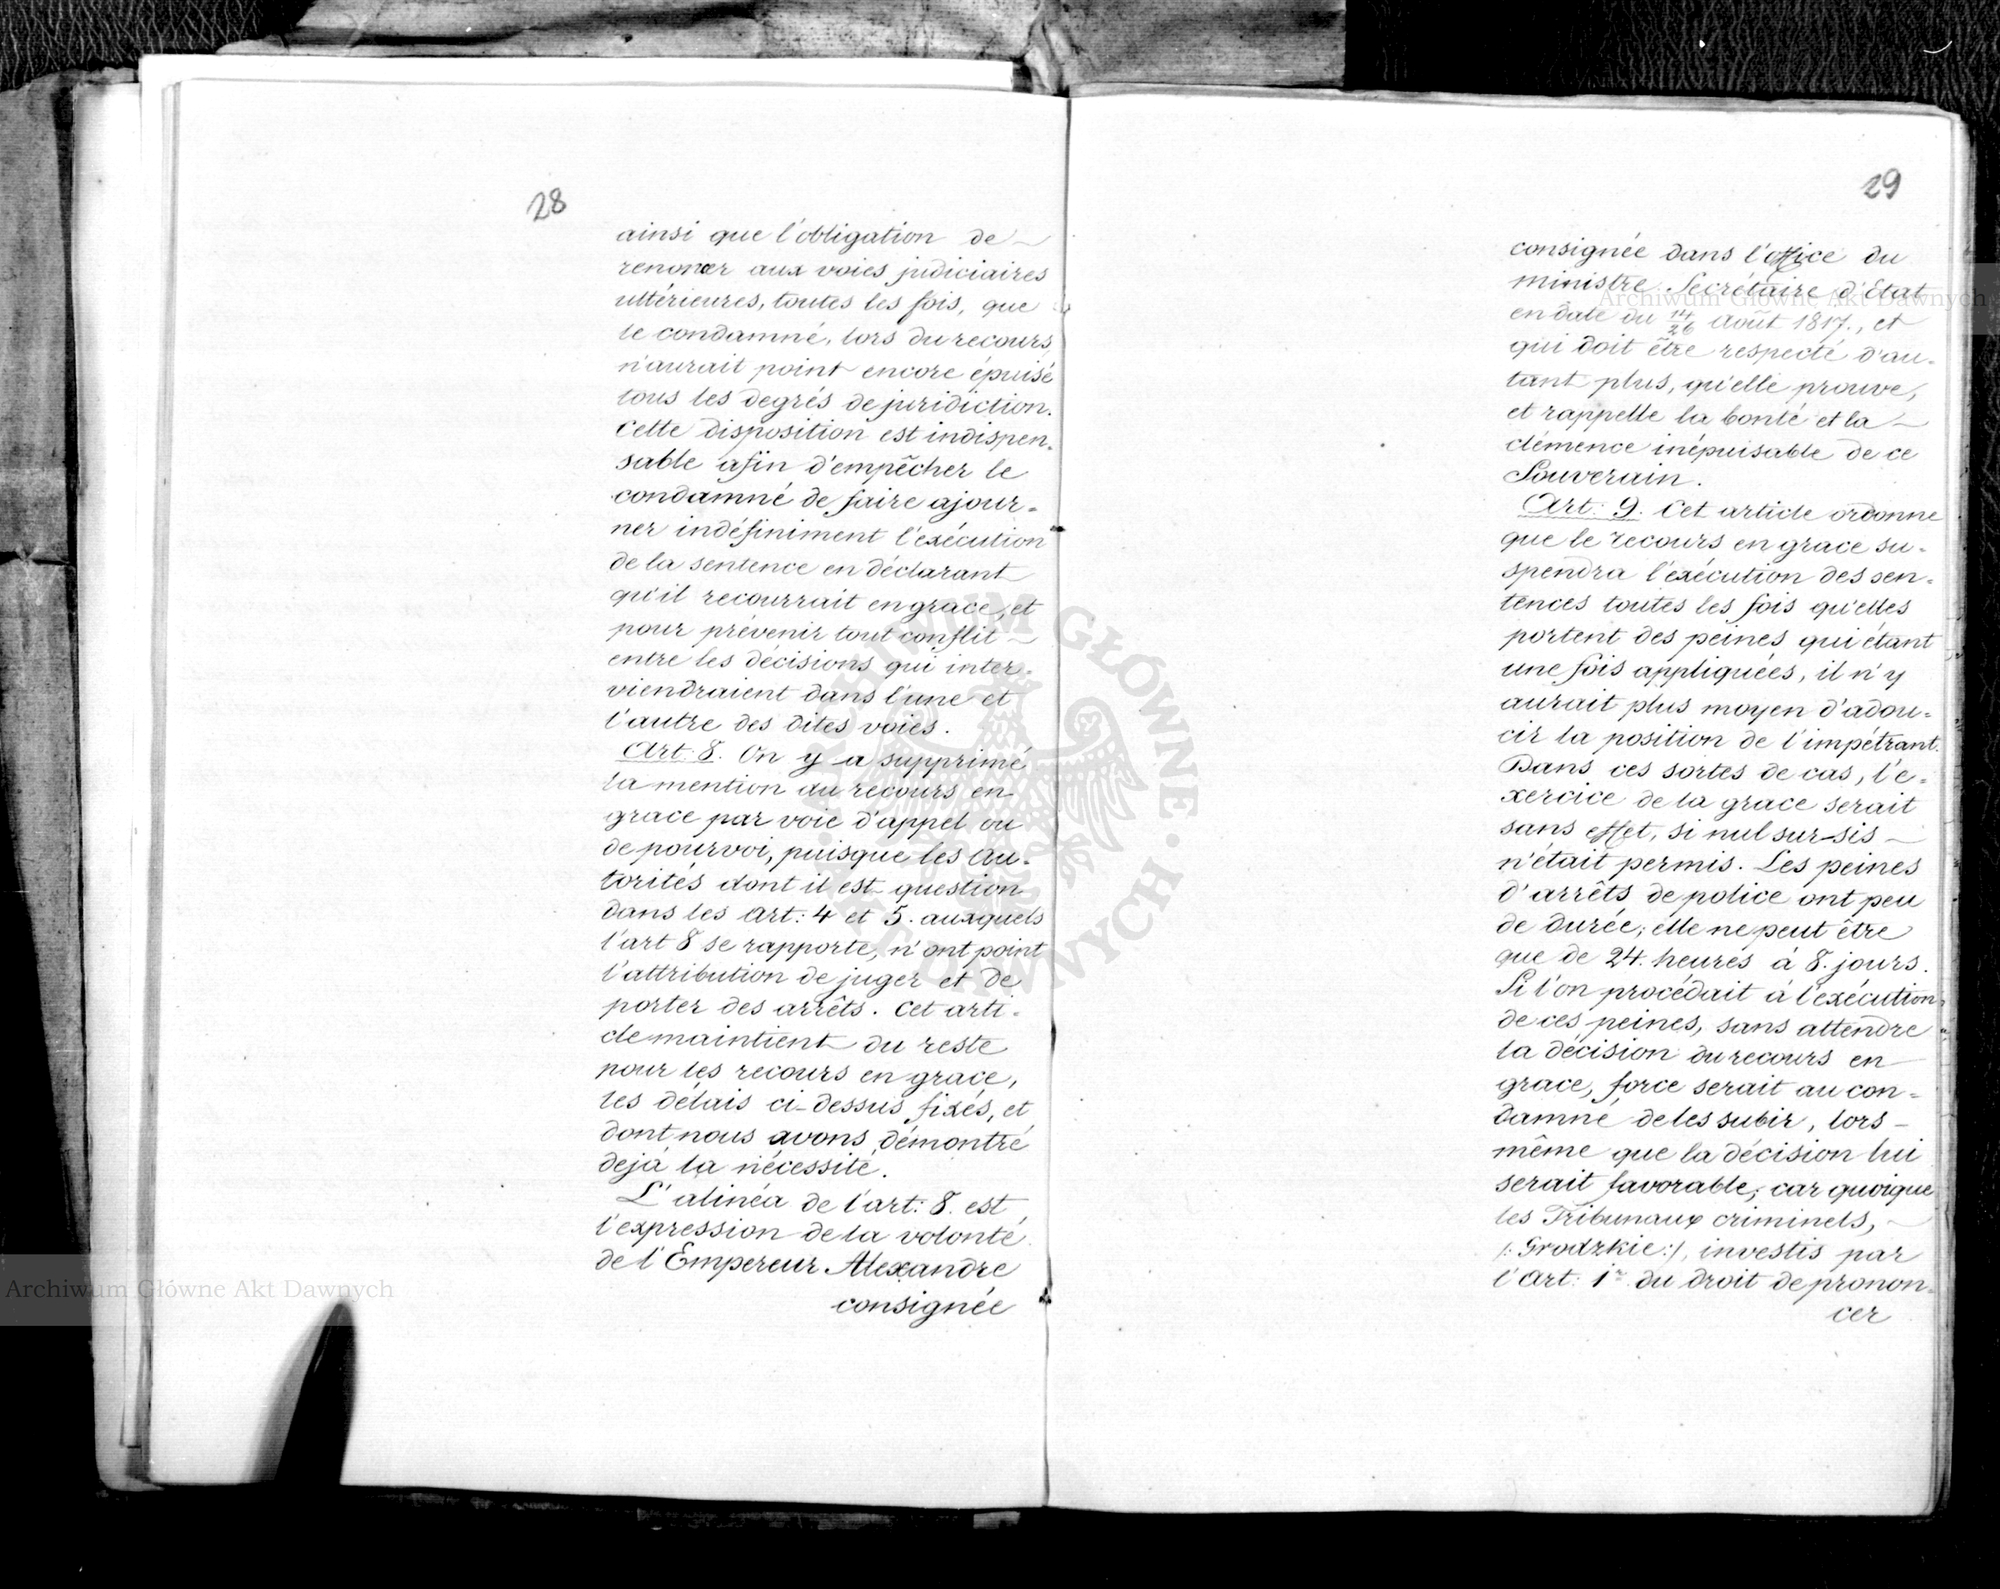 28
ainsi que l'obligation de
renoncer aux voies judiciaires
ultérieures, toutes les fois, que
le condamné, lors du recours
n'aurait point encore épuisé
tous les degrés de juridiction.
Cette disposition est indispen=
sable afin d'empêcher le
condamné de faire ajour=
ner indéfiniment l'exécution
de la sentence en déclarant
qu'il recourrait en grace, et
pour prévenir tout conflit
entre les décisions qui inter=
viendraient dans l'une et
l'autre des dites voies.
Art: 8. On y a supprimé
la mention du recours en
grace par voie d'appel ou
de pourvoi, puisque les Au=
torités dont il est question
dans les Art: 4 et 5. auxquels
l'art 8 se rapporte, n'ont point
l'attribution de juger et de
porter des arrêts. Cet arti=
cle maintient du reste
pour les recours en grace,
les délais ci-dessus fixés, et
dont nous avons démontré
dejà la nécessité.
L'alinéa de l'art: 8. est
l'expression de la volonté
de l'Empereur Alexandre
consignée
29
consignée dans l'office du
ministre Secrétaire d'Etat
en date du 14/26 Août 1817., et
qui doit être respecté d'au=
tant plus, qu'elle prouve,
et rappelle la bonté et la
clémence inépuisable de ce
Souverain.
Art: 9. Cet article ordonne
que le recours en grace su=
spendra l'exécution des sen=
tences toutes les fois qu'elles
portent des peines qui étant
une fois appliquées, il n'y
aurait plus moyen d'adou=
cir la position de l'impétrant.
Dans ces sortes de cas, l'e=
xercice de la grace serait
sans effet, si nul sur-sis
n'était permis. Les peines
d'arrêts de police ont peu
de durée; elle ne peut être
que de 24. heures à 8. jours.
Si l'on procédait à l'exécution
de ces peines, sans attendre
la décision du recours en
grace, force serait au con=
damné de les subir, lors-
même que la décision lui
serait favorable; car quoique
les Tribunaux criminels,
/: Grodzkie:/, investis par
l'Art: 1r du droit de pronon=
cer
Archiwum Główne Akt Dawnych
Archiwum Główne Akt Dawnych
ARCHIWUM GŁÓWNE · AKT DAWNYCH ·